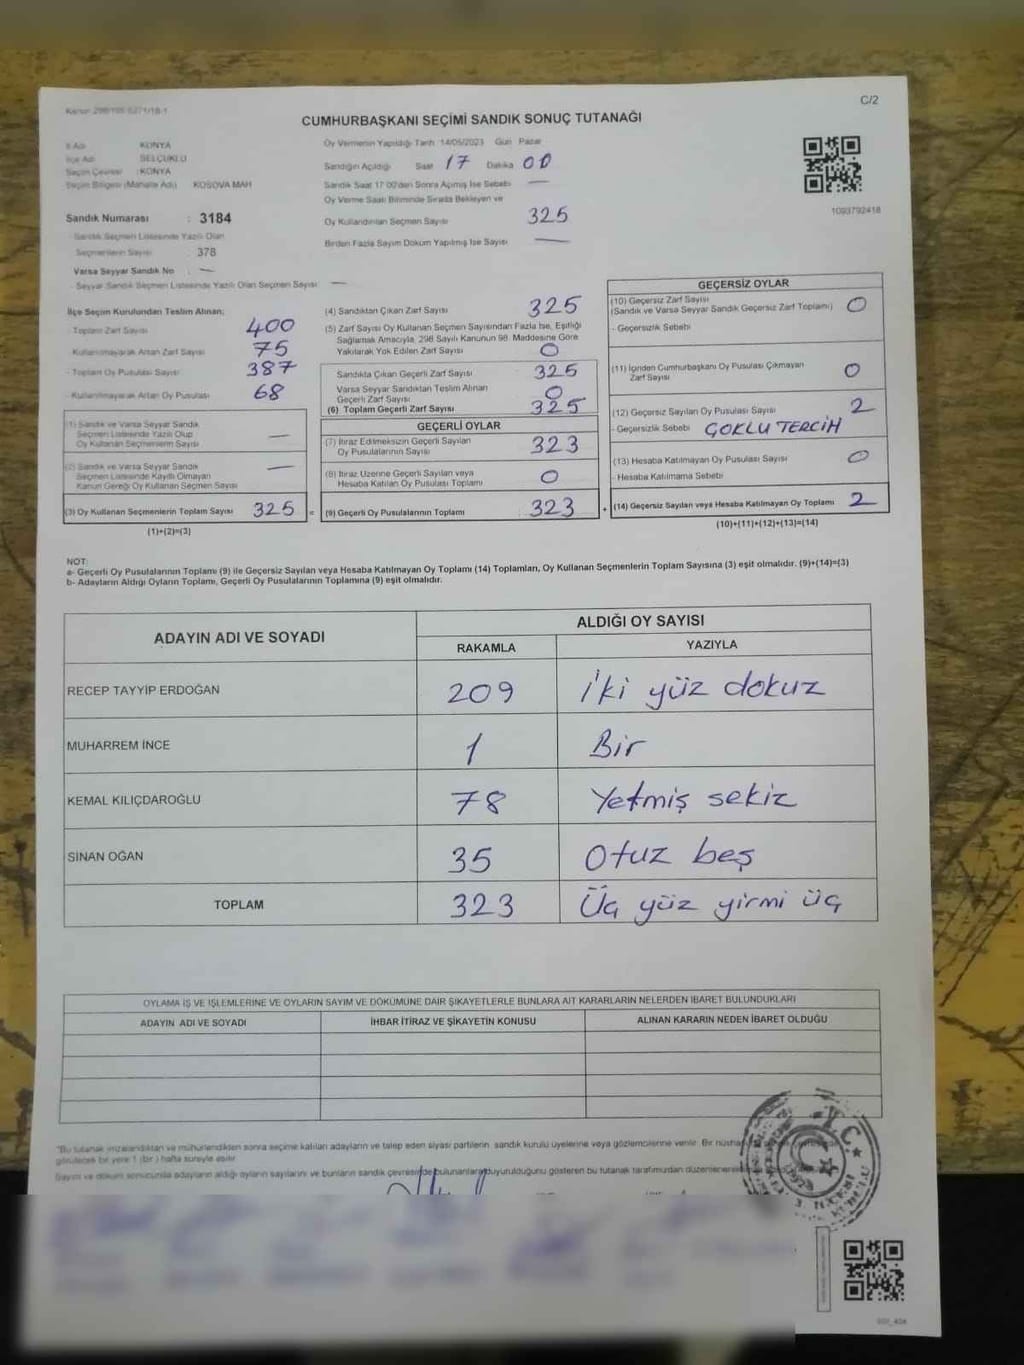 C/2
CUMHURBAŞKANI SEÇİMİ SANDIK SONUÇ TUTANAĞI
İl Adı KONYA
İlçe Adı SELÇUKLU
Seçim Çevresi : KONYA
Seçim Bölgesi (Mahalle Adı) KOSOVA MAH
Sandık Numarası : 3184
Sandık Seçmen Listesinde Yazılı Olan
Seçmenlerin Sayısı : 378
Varsa Seyyar Sandık No : —
- Seyyar Sandık Seçmen Listesinde Yazılı Olan Seçmen Sayısı —
Oy Vermenin Yapıldığı Tarih :14/05/2023 Gün Pazar
Sandığın Açıldığı Saat 17 Dakika 00
Sandık Saat 17:00'den Sonra Açılmış İse Sebebi —
Oy Verme Saati Bitiminde Sırada Bekleyen ve
Oy Kullandırılan Seçmen Sayısı 325
Birden Fazla Sayım Döküm Yapılmış İse Sayısı —
1093792418
İlçe Seçim Kurulundan Teslim Alınan;
- Toplam Zarf Sayısı 400
- Kullanılmayarak Artan Zarf Sayısı 75
- Toplam Oy Pusulası Sayısı 387
- Kullanılmayarak Artan Oy Pusulası 68
(1) Sandık ve Varsa Seyyar Sandık
Seçmen Listesinde Yazılı Olup
Oy Kullanan Seçmenlerin Sayısı —
(2) Sandık ve Varsa Seyyar Sandık
Seçmen Listesinde Kayıtlı Olmayan
Kanun Gereği Oy Kullanan Seçmen Sayısı —
(3) Oy Kullanan Seçmenlerin Toplam Sayısı 325 =
(1)+(2)=(3)
(4) Sandıktan Çıkan Zarf Sayısı 325
(5) Zarf Sayısı Oy Kullanan Seçmen Sayısından Fazla İse, Eşitliği
Sağlamak Amacıyla, 298 Sayılı Kanunun 98. Maddesine Göre
Yakılarak Yok Edilen Zarf Sayısı 0
Sandıkta Çıkan Geçerli Zarf Sayısı 325
Varsa Seyyar Sandıktan Teslim Alınan
Geçerli Zarf Sayısı 0
(6) Toplam Geçerli Zarf Sayısı 325
GEÇERLİ OYLAR
(7) İtiraz Edilmeksizin Geçerli Sayılan
Oy Pusulalarının Sayısı 323
(8) İtiraz Üzerine Geçerli Sayılan veya
Hesaba Katılan Oy Pusulası Toplamı 0
(9) Geçerli Oy Pusulalarının Toplamı 323 +
GEÇERSİZ OYLAR
(10) Geçersiz Zarf Sayısı
(Sandık ve Varsa Seyyar Sandık Geçersiz Zarf Toplamı) 0
- Geçersizlik Sebebi
(11) İçinden Cumhurbaşkanı Oy Pusulası Çıkmayan
Zarf Sayısı 0
(12) Geçersiz Sayılan Oy Pusulası Sayısı 2
- Geçersizlik Sebebi ÇOKLU TERCİH
(13) Hesaba Katılmayan Oy Pusulası Sayısı 0
- Hesaba Katılmama Sebebi
(14) Geçersiz Sayılan veya Hesaba Katılmayan Oy Toplamı 2
(10)+(11)+(12)+(13)=(14)
NOT:
a- Geçerli Oy Pusulalarının Toplamı (9) ile Geçersiz Sayılan veya Hesaba Katılmayan Oy Toplamı (14) Toplamları, Oy Kullanan Seçmenlerin Toplam Sayısına (3) eşit olmalıdır. (9)+(14)=(3)
b- Adayların Aldığı Oyların Toplamı, Geçerli Oy Pusulalarının Toplamına (9) eşit olmalıdır.
ADAYIN ADI VE SOYADI ALDIĞI OY SAYISI
RAKAMLA YAZIYLA
RECEP TAYYİP ERDOĞAN 209 İki yüz dokuz
MUHARREM İNCE 1 Bir
KEMAL KILIÇDAROĞLU 78 Yetmiş sekiz
SİNAN OĞAN 35 Otuz beş
TOPLAM 323 Üç yüz yirmi üç
OYLAMA İŞ VE İŞLEMLERİNE VE OYLARIN SAYIM VE DÖKÜMÜNE DAİR ŞİKAYETLERLE BUNLARA AİT KARARLARIN NELERDEN İBARET BULUNDUKLARI
ADAYIN ADI VE SOYADI İHBAR İTİRAZ VE ŞİKAYETİN KONUSU ALINAN KARARIN NEDEN İBARET OLDUĞU
"Bu tutanak imzalandıktan ve mühürlendikten sonra seçime katılan adayların ve talep eden siyasi partilerin sandık kurulu üyelerine veya gözlemcilerine verilir. Bir
görülecek bir yere 1 (bir) hafta süreyle asılır.
Sayım ve döküm sonucunda adayların aldığı oyların sayılarını ve bunların sandık çevresinde bulunanlara duyurulduğunu gösteren bu tutanak tarafımızdan
T.C.